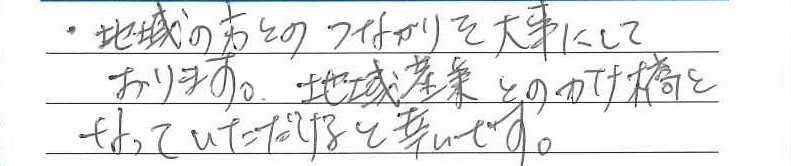 ・地域の方とのつながりを大事にして
おります。地域産業とのかけ橋と
なっていただけると幸いです。